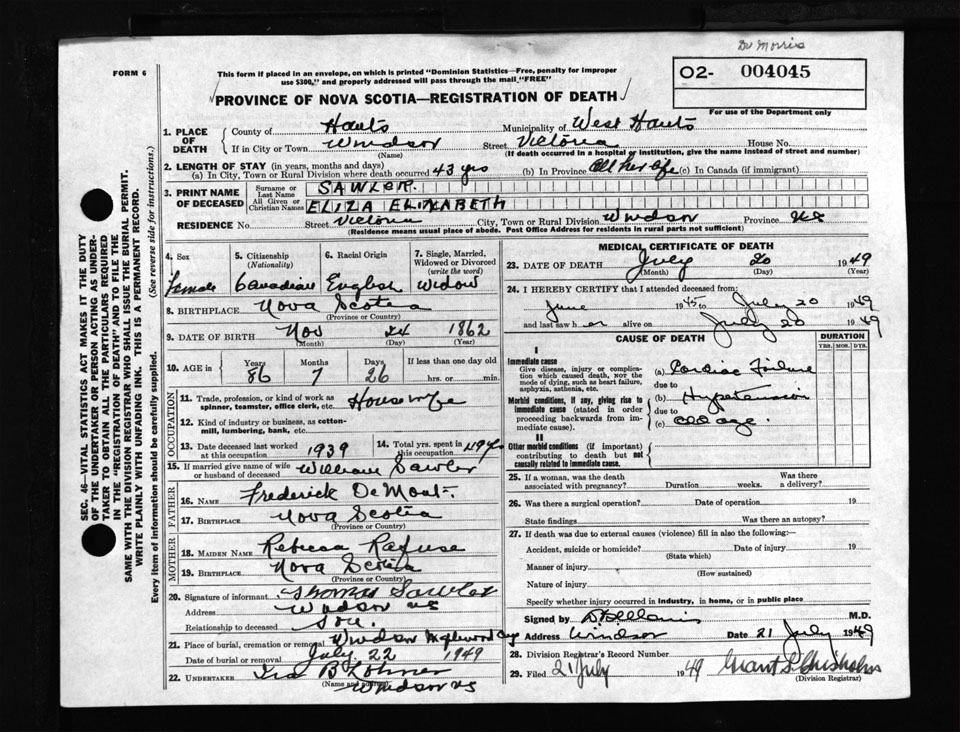 Dr Morris
FORM 6
This form if placed in an envelope, on which is printed "Dominion Statistics—Free, penalty for improper
use $300," and properly addressed will pass through the mail "FREE"
O2- 004045
For use of the Department only
PROVINCE OF NOVA SCOTIA—REGISTRATION OF DEATH
SEC. 46—VITAL STATISTICS ACT MAKES IT THE DUTY
OF THE UNDERTAKER OR PERSON ACTING AS UNDER-
TAKER TO OBTAIN ALL THE PARTICULARS REQUIRED
IN THE "REGISTRATION OF DEATH" AND TO FILE THE
SAME WITH THE DIVISION REGISTRAR WHO SHALL ISSUE THE BURIAL PERMIT.
WRITE PLAINLY WITH UNFADING INK. THIS IS A PERMANENT RECORD.
Every item of information should be carefully supplied. (See reverse side for instructions.)
1. PLACE OF DEATH County of Hants Municipality of West Hants
If in City or Town Windsor Street Victoria House No.
(Name) (If death occurred in a hospital or institution, give the name instead of street and number)
2. LENGTH OF STAY (in years, months and days)
(a) In City, Town or Rural Division where death occurred 43 yrs (b) In Province All her life (c) In Canada (if immigrant)
3. PRINT NAME OF DECEASED Surname or Last Name SAWLER.
All Given or Christian Names ELIZA ELIZABETH
RESIDENCE No. Street Victoria City, Town or Rural Division Windsor Province NS
(Residence means usual place of abode. Post Office Address for residents in rural parts not sufficient)
4. Sex 5. Citizenship (Nationality) 6. Racial Origin 7. Single, Married, Widowed or Divorced (write the word)
Female Canadian English Widow
8. BIRTHPLACE Nova Scotia
(Province or Country)
9. DATE OF BIRTH Nov 24 1862
(Month) (Day) (Year)
10. AGE in Years Months Days If less than one day old
86 7 26 hrs. or min.
OCCUPATION
11. Trade, profession, or kind of work as spinner, teamster, office clerk, etc. Housewife
12. Kind of industry or business, as cotton-mill, lumbering, bank, etc.
13. Date deceased last worked at this occupation 1939 14. Total yrs. spent in this occupation
15. If married give name of wife or husband of deceased William Sawler
FATHER
16. NAME Frederick DeMont.
17. BIRTHPLACE Nova Scotia
(Province or Country)
MOTHER
18. MAIDEN NAME Rebecca Rafuse
19. BIRTHPLACE Nova Scotia
(Province or Country)
20. Signature of informant Thomas Sawler
Address Windsor NS
Relationship to deceased Son
21. Place of burial, cremation or removal Windsor Maplewood Cem
Date of burial or removal July 22 1949
22. UNDERTAKER Ira B Lohnes
(Name and address) Windsor NS
MEDICAL CERTIFICATE OF DEATH
23. DATE OF DEATH July 20 1949
(Month) (Day) (Year)
24. I HEREBY CERTIFY that I attended deceased from
June 1945 to July 20 1949
and last saw her alive on July 20 1949
CAUSE OF DEATH DURATION
YRS. MOS. DYS.
I
Immediate cause
Give disease, injury or complication which caused death, NOT the mode of dying, such as heart failure, asphyxia, asthenia, etc.
(a) Cardiac Failure
due to
Morbid conditions, if any, giving rise to immediate cause (stated in order proceeding backwards from immediate cause).
(b) Hypetension
due to
(c) Old age.
II
Other morbid conditions (if important) contributing to death but not causally related to immediate cause.
25. If a woman, was the death associated with pregnancy? Duration weeks. Was there a delivery?
26. Was there a surgical operation? Date of operation 19
State findings Was there an autopsy?
27. If death was due to external causes (violence) fill in also the following:—
Accident, suicide or homicide? Date of injury 19
(State which)
Manner of injury
(How sustained)
Nature of injury
Specify whether injury occurred in industry, in home, or in public place
Signed by M.D.
Address Windsor Date 21 July 1949
28. Division Registrar's Record Number
29. Filed 21 July 1949 Grant S Chisholm
(Division Registrar)